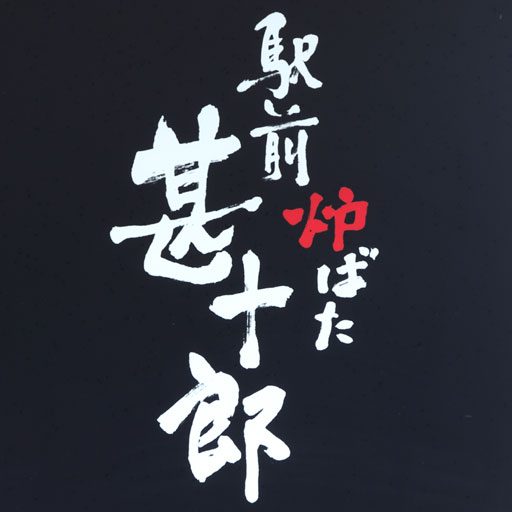 駅前
炉ばた
甚十郎